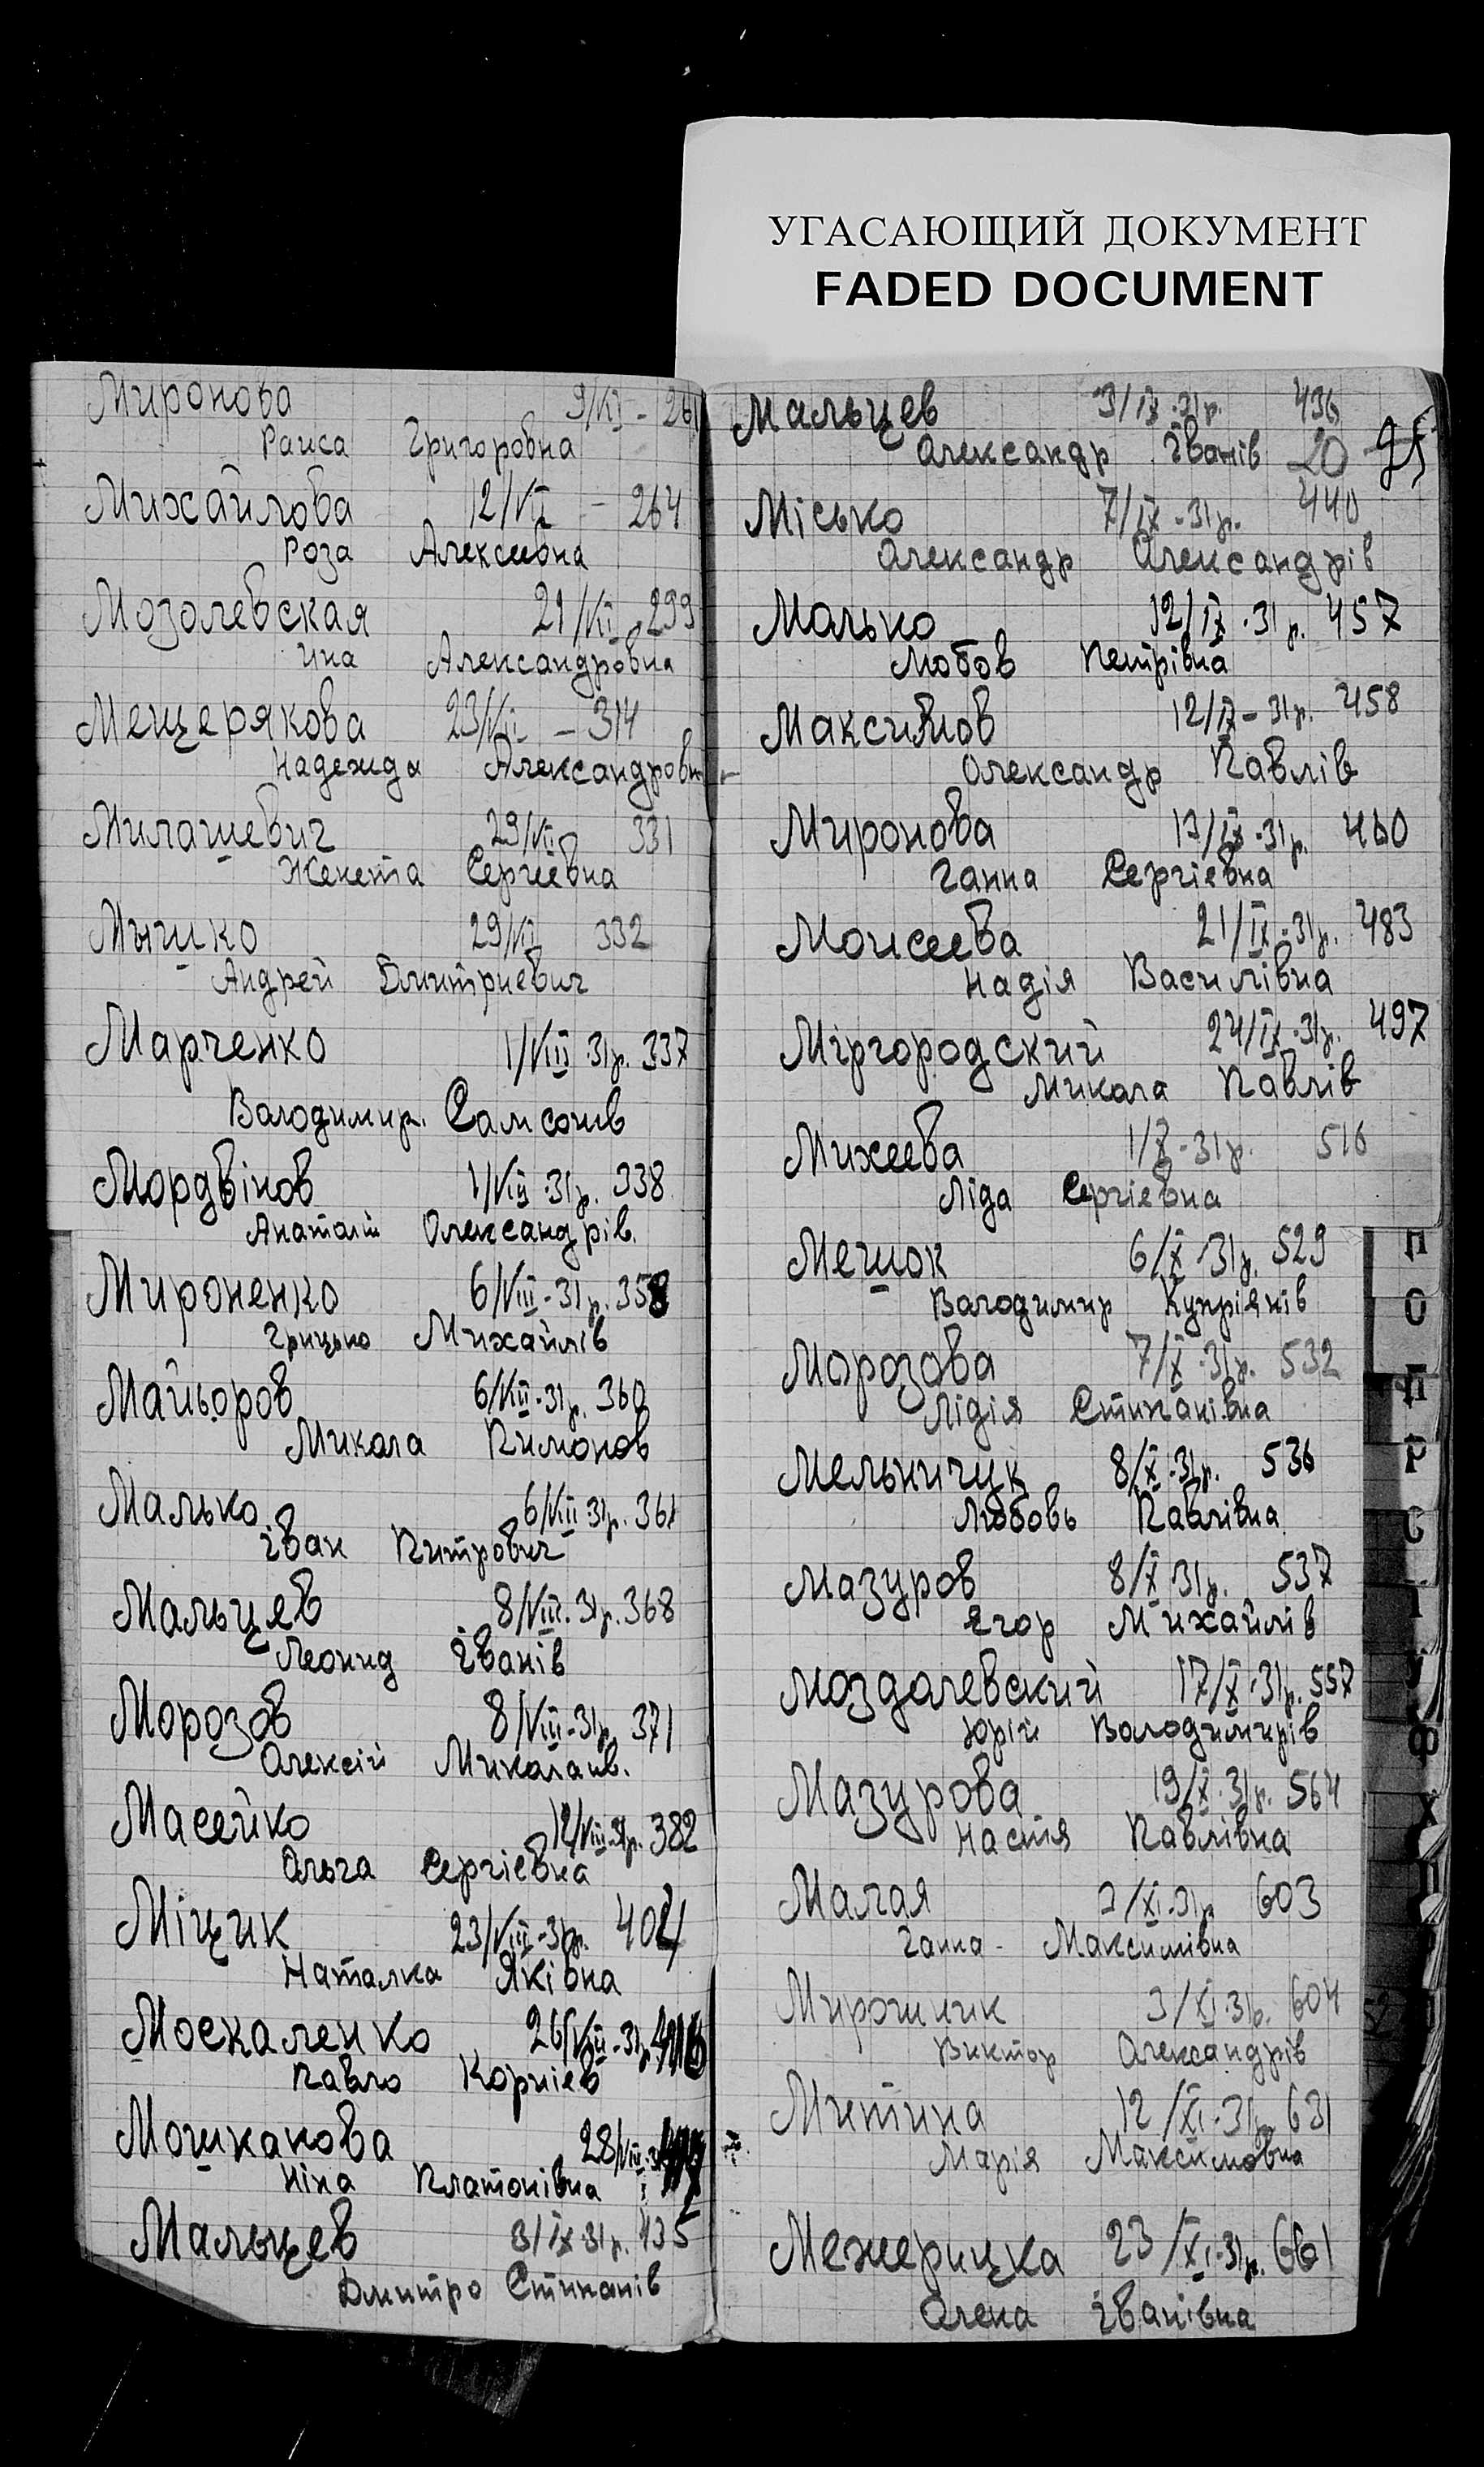 УГАСАЮЩИЙ ДОКУМЕНТ
FADED DOCUMENT
Миронова 9/VI - 261
Раиса Григоровна
Михайлова 12/VI - 264
Роза Алексеевна
Мозолевская 21/VI - 299
Ина Александровна
Мещерякова 23/VI - 314
Надежда Александровн
Милашевич 29/VI 331
Женета Сергіевна
Мышко 29/VI 332
Андрей Дмитриевич
Марченко 1/VIII 31р. 337
Володимир. Самсонів
Мордвінов 1/VIII 31р. 338
Анатолій Олександрів.
Мироненко 6/VIII - 31р. 358
Грицько Михайлів
Майьоров 6/VIII - 31р. 360
Микола Пимонов
Малько 6/VIII 31р. 361
Іван Питрович
Мальцев 8/VIII. 31р. 368
Леонид Іванів
Морозов 8/VIII - 31р. 371
Олексій Миколаїв.
Масейко 12/VIII-31р. 382
Ольга Сергіевна
Міщик 23/VIII - 31р. 404
Наталка Яківна
Москаленко 26/VIII - 31р.
Павло Корніев
Мошканова 28/VIII-31
Ніна Платонівна
Мальцев 3/IX 31р. 435
Дмитро Стипанів
Мальцев 3/IX - 31р. 436
Олександр Іванів 20
Місько 7/IX - 31р. 440
Олександр Олександрів
Малько 12/IX - 31р. 457
Любов Петрівна
Максимов 12/IX - 31р. 458
Олександр Павлів
Миронова 13/IX - 31р. 460
Ганна Сергіевна
Моисеева 21/IX - 31р. 483
Надія Василівна
Міргородский 24/IX - 31р. 497
Микола Павлів
Михеева 1/X - 31р. 516
Ліда Сергіевна
Мешок 6/X - 31р. 529
Володимир Купріянів
Морозова 7/X - 31р. 532
Лідія Стипанівна
Мельничук 8/X - 31р. 536
Любовь Павлівна
Мазуров 8/X 31р. 537
Ягор Михайлів
Моздалевский 17/X - 31р. 557
Юрій Володимирів
Мазурова 19/X - 31р. 564
Настя Павлівна
Малая 3/XI - 31р 603
Ганна - Максимівна
Мирошник 3/XI - 31р. 604
Виктор Олександрів
Митина 12/XI - 31р. 631
Марія Максимовна
Межерицка 23/XI - 31р. 661
Олена Іванівна
П
О
П
Р
С
У
Ф
Х